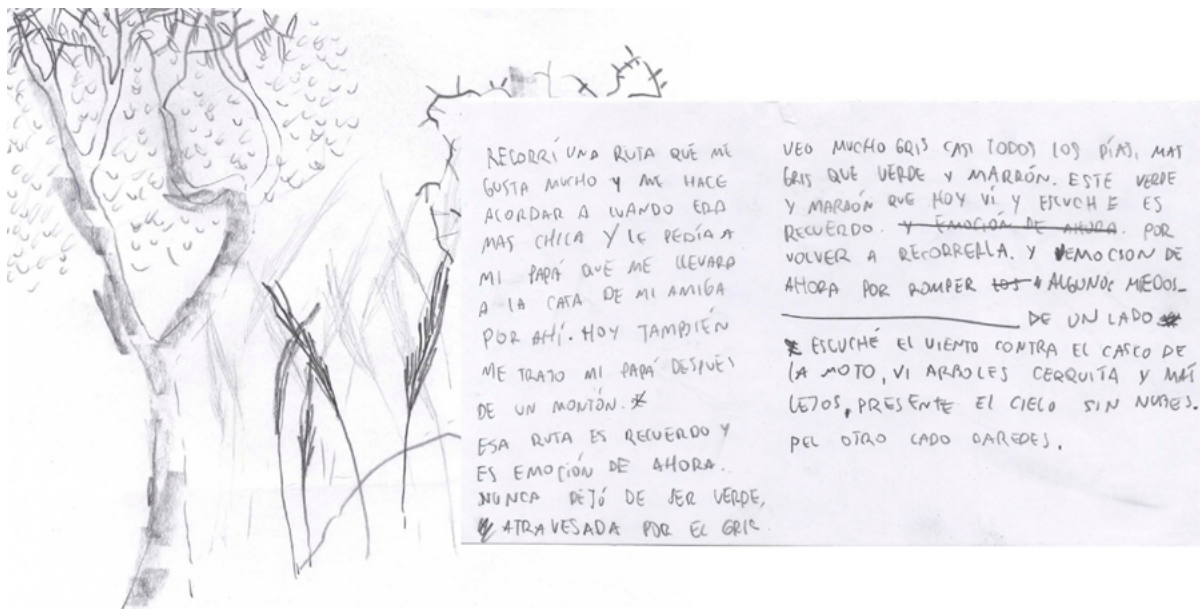 RECORRÍ UNA RUTA QUE ME
GUSTA MUCHO Y ME HACE
ACORDAR A CUANDO ERA
MAS CHICA Y LE PEDÍA A
MI PAPÁ QUE ME LLEVARA
A LA CASA DE MI AMIGA
POR AHÍ. HOY TAMBIÉN
ME TRAJO MI PAPÁ DESPUES
DE UN MONTÓN.
ESA RUTA ES RECUERDO Y
ES EMOCIÓN DE AHORA.
NUNCA DEJÓ DE SER VERDE,
ATRAVESADA POR EL GRIS.
VEO MUCHO GRIS CASI TODOS LOS DÍAS, MAS
GRIS QUE VERDE Y MARRÓN. ESTE VERDE
Y MARRÓN QUE HOY VI Y ESCUCHE ES
RECUERDO. Y EMOCIÓN DE AHORA. POR
VOLVER A RECORRERLA. Y EMOCION DE
AHORA POR ROMPER LOS ALGUNOS MIEDOS_
DE UN LADO
ESCUCHÉ EL VIENTO CONTRA EL CASCO DE
LA MOTO, VI ARBOLES CERQUITA Y MAS
LEJOS, PRESENTE EL CIELO SIN NUBES.
DEL OTRO LADO PAREDES.